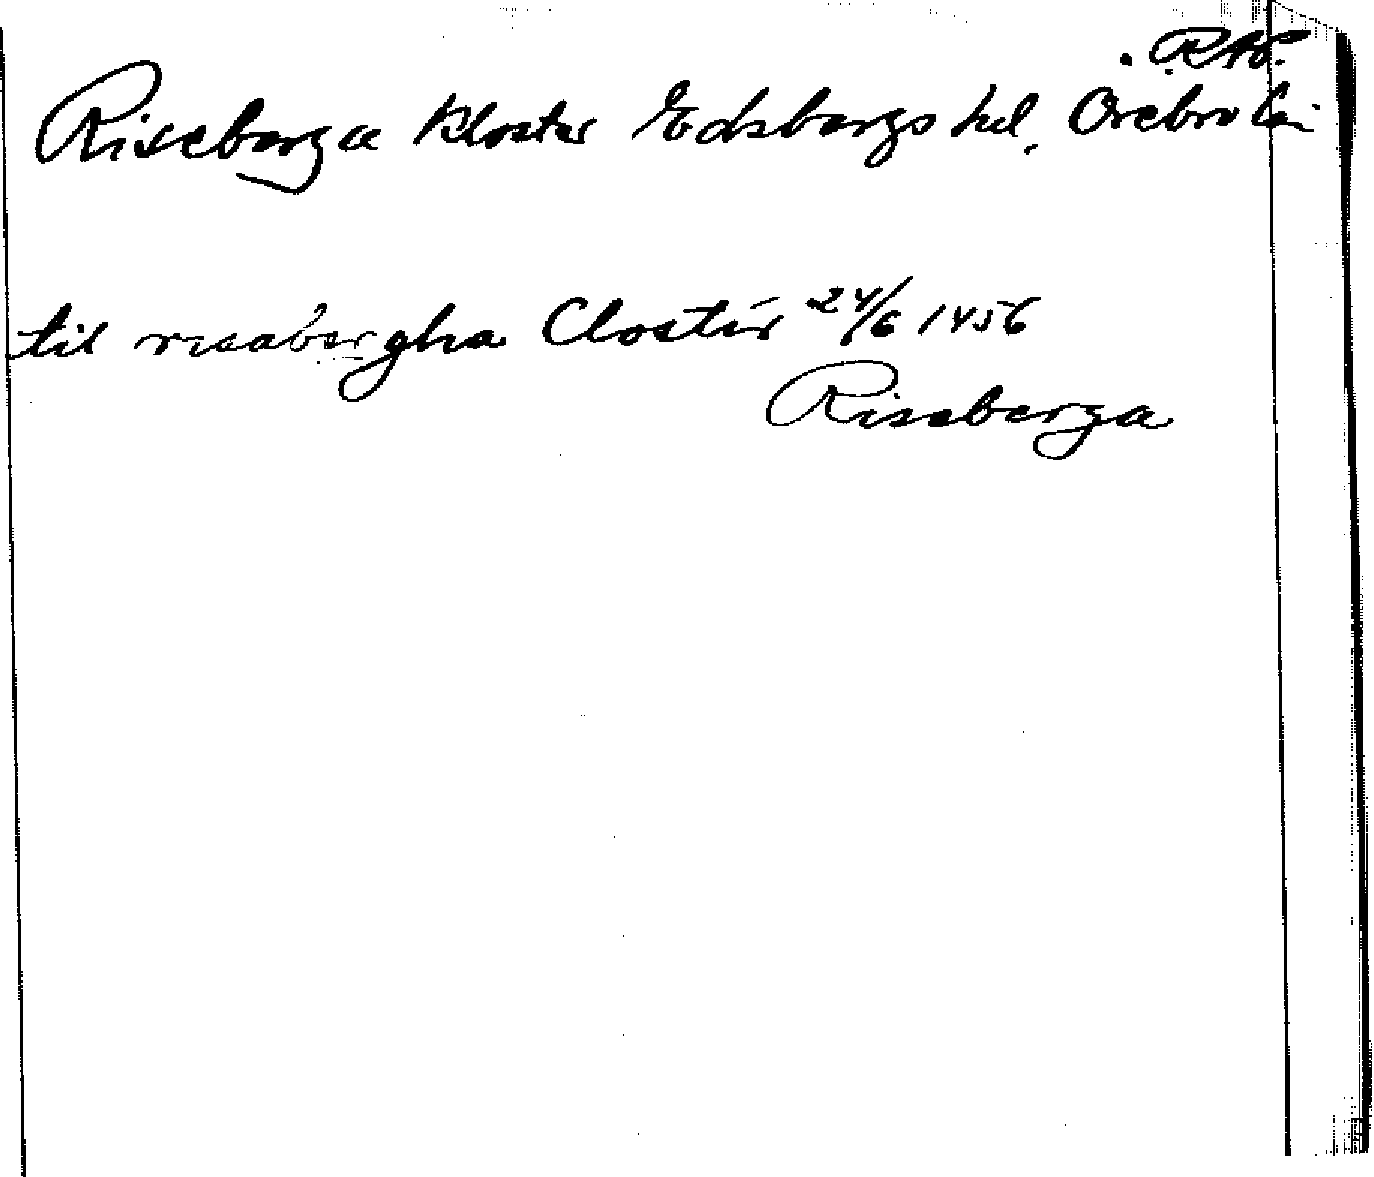 R A P.
Riseberga Kloster Edsbergs hd, Örebro län
til risabergha Closter 24/6 1456
Riseberga